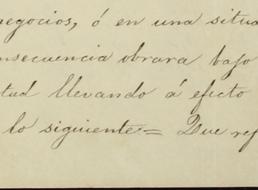 negocios, ó en una situa
nsecuencia obrara bajo
tud llevando á efecto
lo siguiente= Que ref